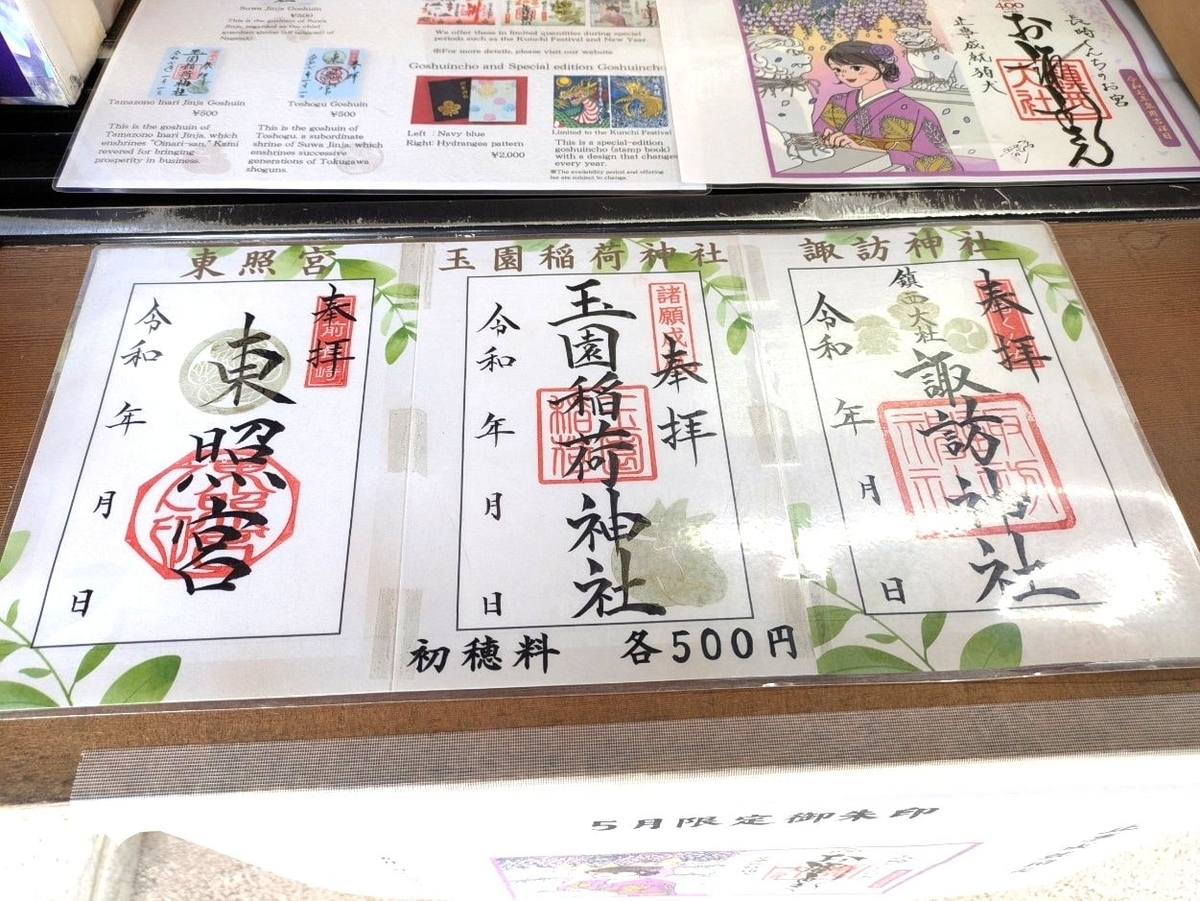 Suwa Jinja Goshuin
¥500
This is the goshuin of Suwa
We offer these in limited quantities during special
periods such as the Kunchi Festival and New Year.
※For more details, please visit our website
Goshuincho and Special edition Goshuincho
Tamazono Inari Jinja Goshuin
¥500
This is the goshuin of
Tamazono Inari Jinja, which
enshrines "Oinari-san," Kami
revered for bringing
prosperity in business.
Toshogu Goshuin
¥500
This is the goshuin of
Toshogu, a subordinate
shrine of Suwa Jinja, which
enshrines successive
generations of Tokugawa
shoguns.
Left : Navy blue
Right: Hydrangea pattern
¥2,000
Limited to the Kunchi Festival
This is a special-edition
goshuincho (stamp book)
with a design that changes
every year.
※The availability period and offering
fee are subject to change.
400
長崎くんちのお宮
止事成就狛犬
東照宮
奉拝
東照宮
令和 年 月 日
玉園稲荷神社
諸願成
奉拝
玉園稲荷神社
令和 年 月 日
諏訪神社
奉拝
鎮西大社
諏訪神社
令和 年 月 日
初穂料 各500円
5月限定御朱印